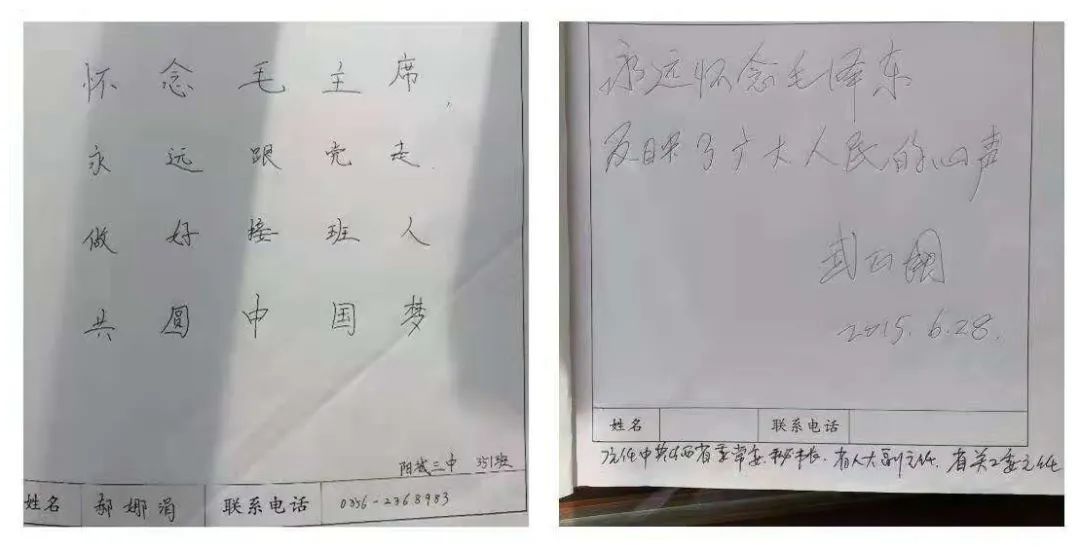 怀念毛主席，
永远跟党走．
做好接班人
共圆中国梦
阳城三中 351班
姓名 郝娜涓 联系电话 0356-2368983
永远怀念毛泽东
反映了广大人民的心声
武正国
2015.6.28.
姓名 联系电话
任中共山西省委常委、秘书长、省人大副主任、省关工委主任